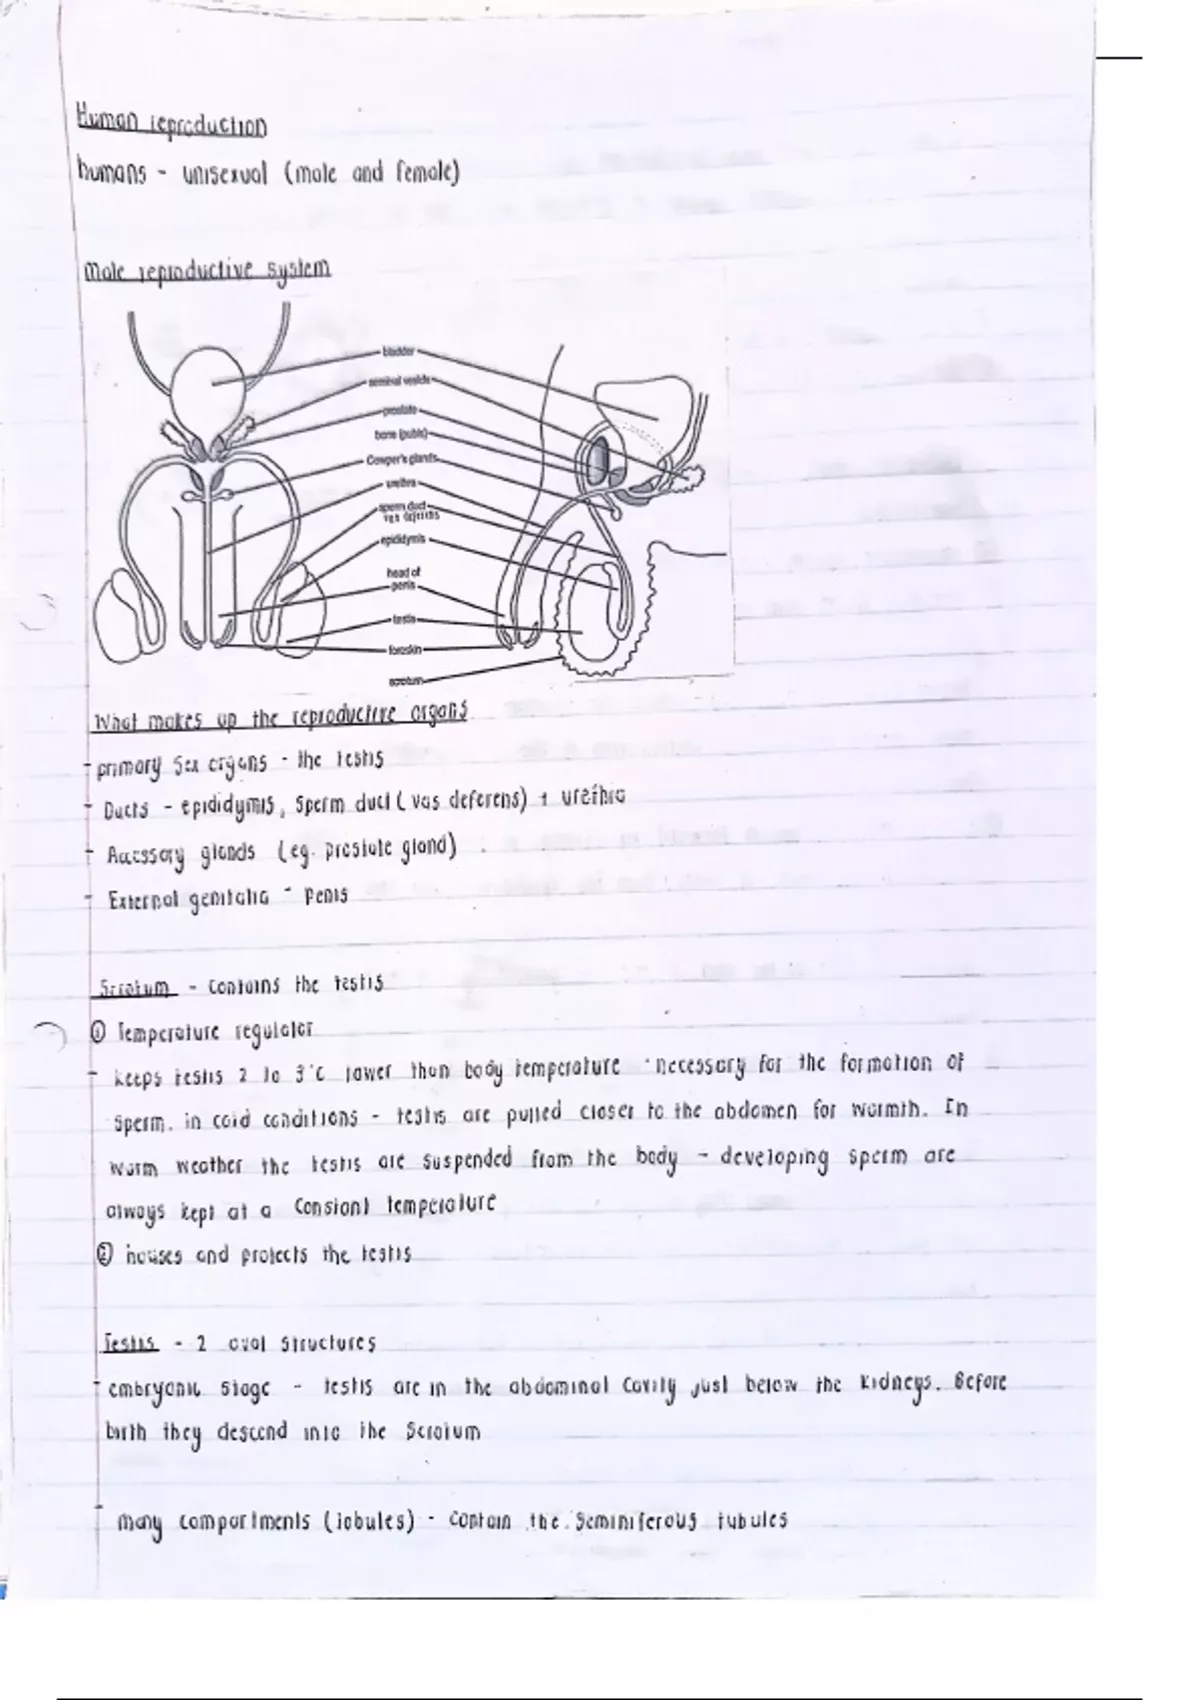 Human reproduction
humans - unisexual (male and female)
Male reproductive system
bladder
seminal vesicle
prostate
bone (pubis)
Cowper's glands
urethra
sperm duct
vas deferens
epididymis
head of
penis
testis
foreskin
scrotum
What makes up the reproductive organs
- primary sex organs - the testis
- Ducts - epididymis, sperm duct (vas deferens) + urethra
- Accessory glands (eg. prostate gland)
- External genitalia - penis
Scrotum - contains the testis
① Temperature regulator
- keeps testis 2 to 3°C lower than body temperature - necessary for the formation of
sperm. in cold conditions - testis are pulled closer to the abdomen for warmth. In
warm weather the testis are suspended from the body - developing sperm are
always kept at a constant temperature
② houses and protects the testis
Testis - 2 oval structures
- embryonic stage - testis are in the abdominal cavity just below the kidneys. Before
birth they descend into the scrotum
- many compartments (lobules) - contain the seminiferous tubules